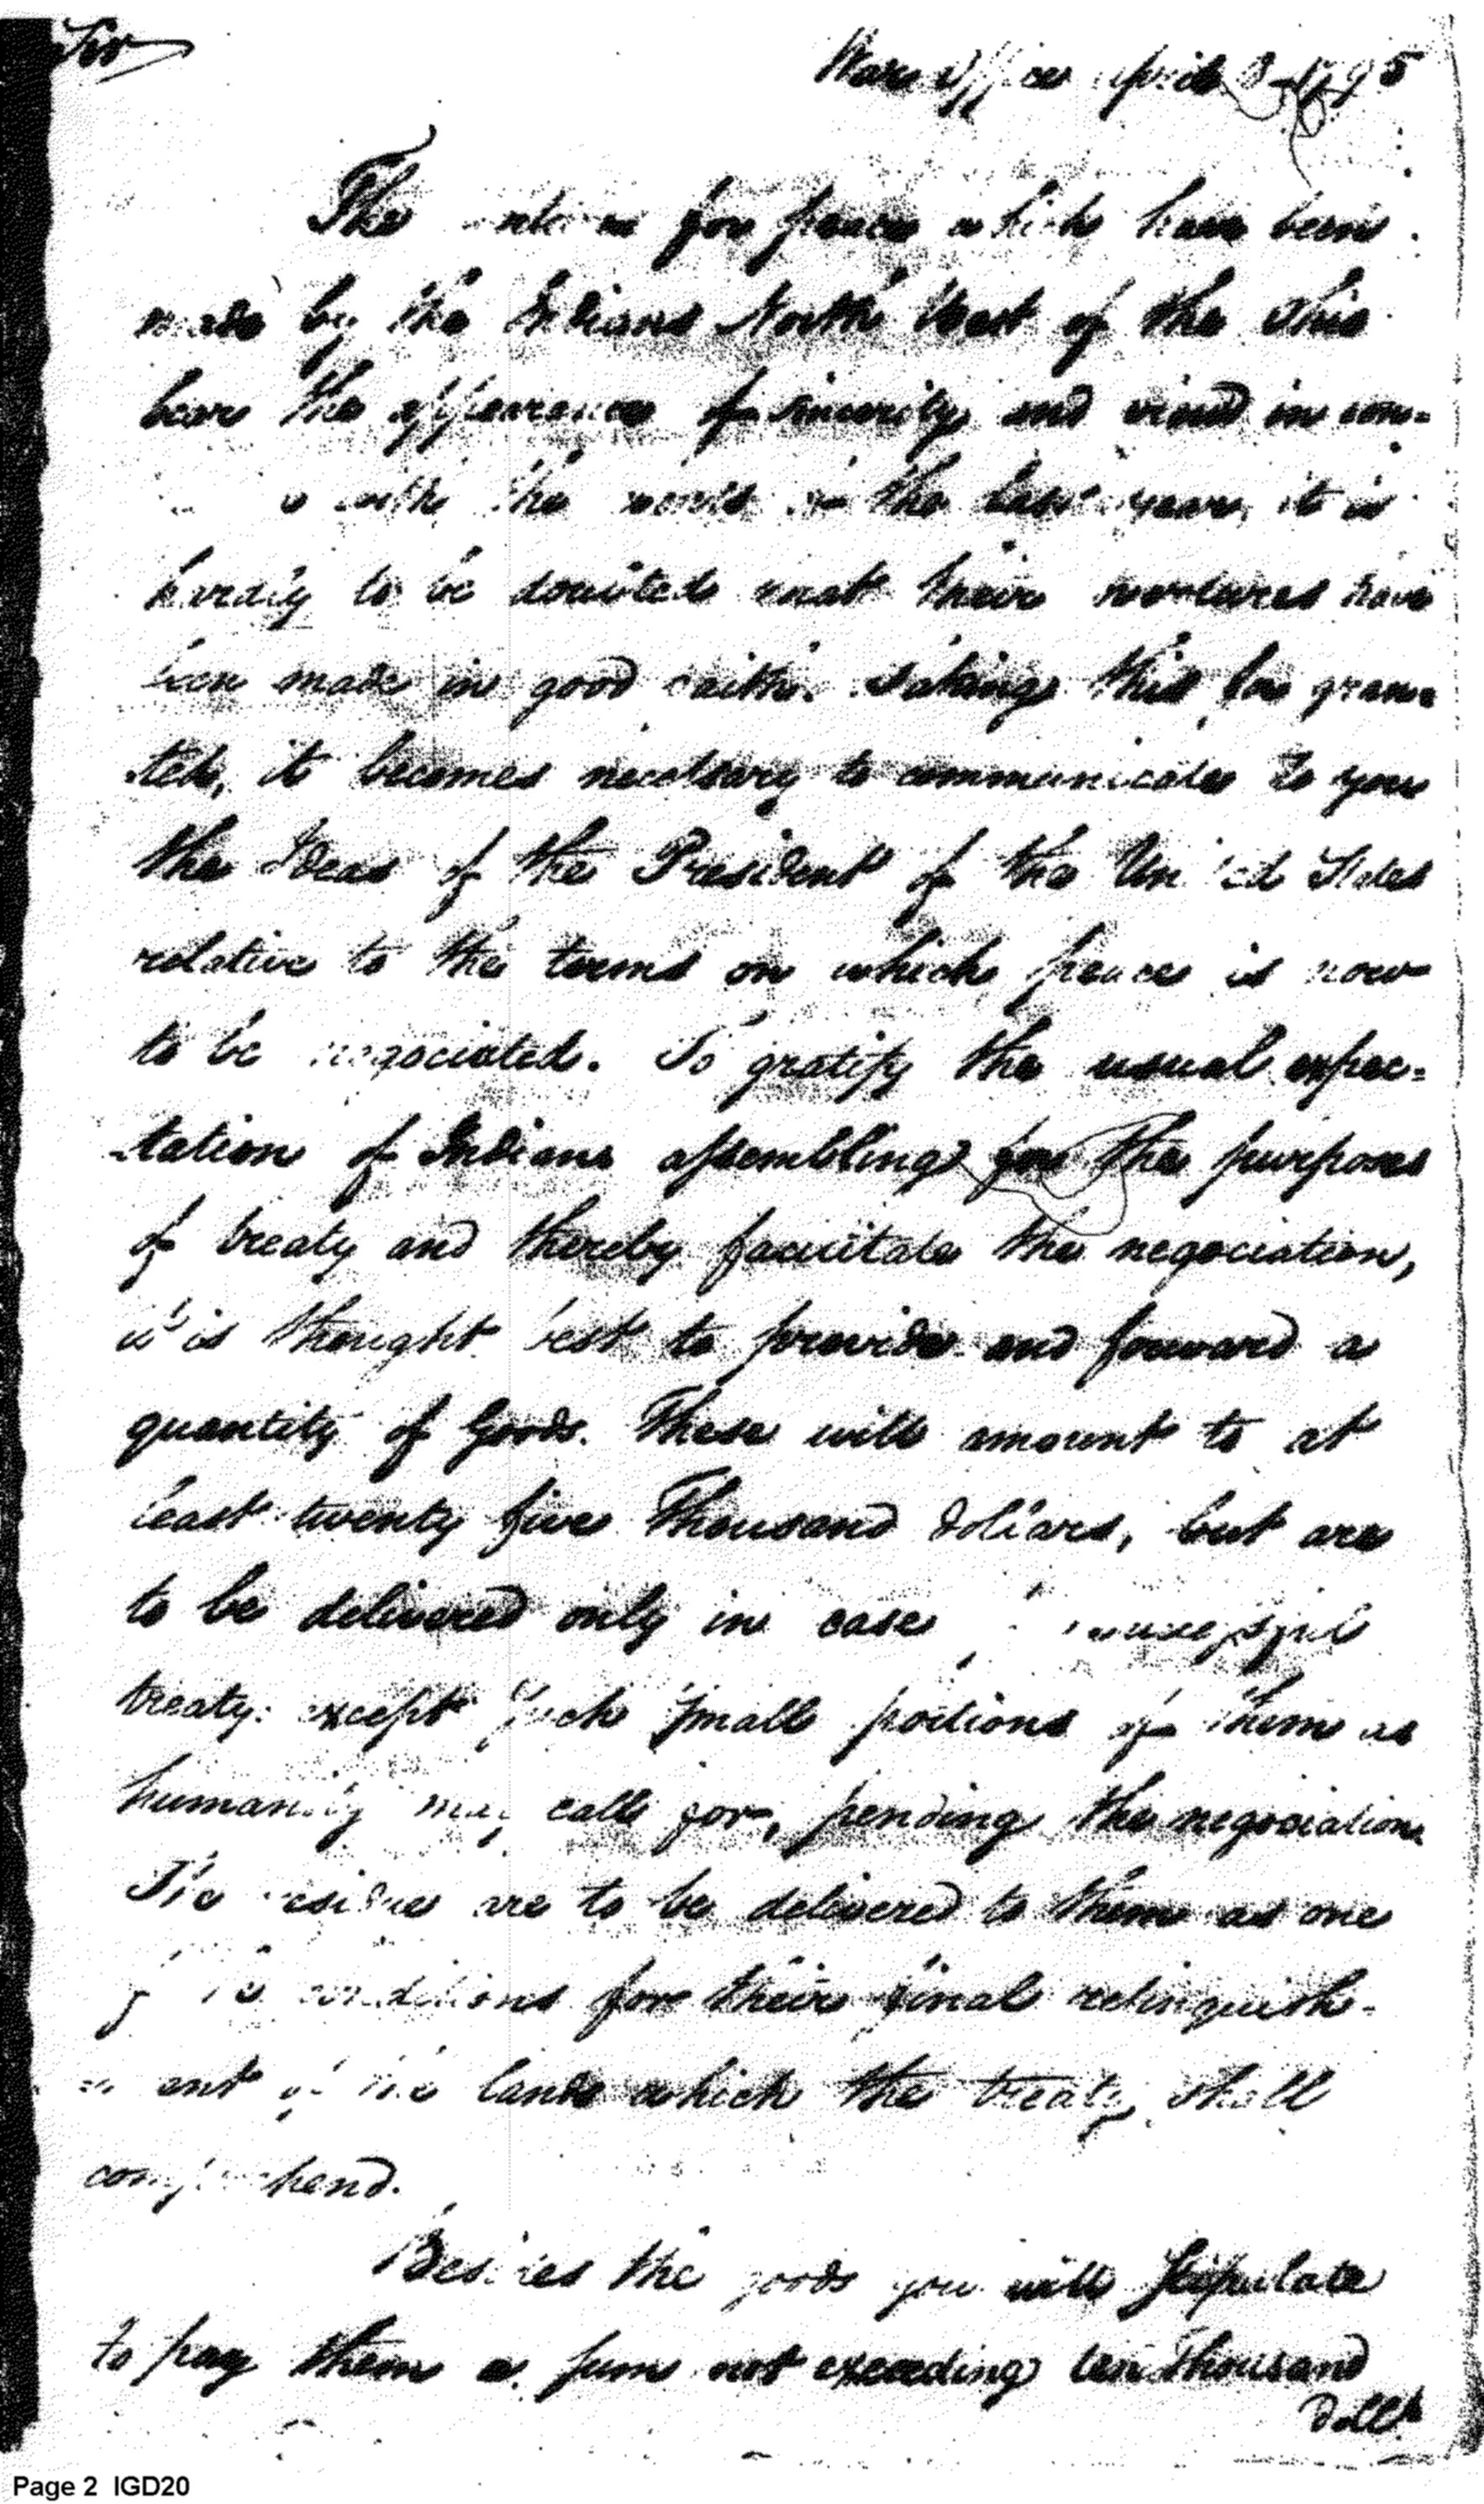 Sir
War Office April 8 1795
The for peace which have been
made by the Indians North West of the Ohio
bear the appearance of sincerity and viewd in con-
with the of the last year, it is
hardly to be doubted that their overtures have
been made in good faith. Taking this for gran-
ted, it becomes necessary to communicate to you
the Ideas of the President of the United States
relative to the terms on which peace is now
to be negociated. To gratify the usual expec-
tation of Indians assembling for the purposes
of treaty and thereby facilitate the negociation,
it is thought best to provide and forward a
quantity of Goods. These will amount to at
least twenty five Thousand dollars, but are
to be delivered only in case successful
treaty: except such small portions of them as
humanity may call for, pending the negociation
The residue are to be delivered to them as one
of the conditions for their final relinquish-
ment of the lands which the treaty shall
comprehend.
Besides the goods you will stipulate
to pay them a sum not exceeding ten Thousand
Dolls
Page 2 IGD20